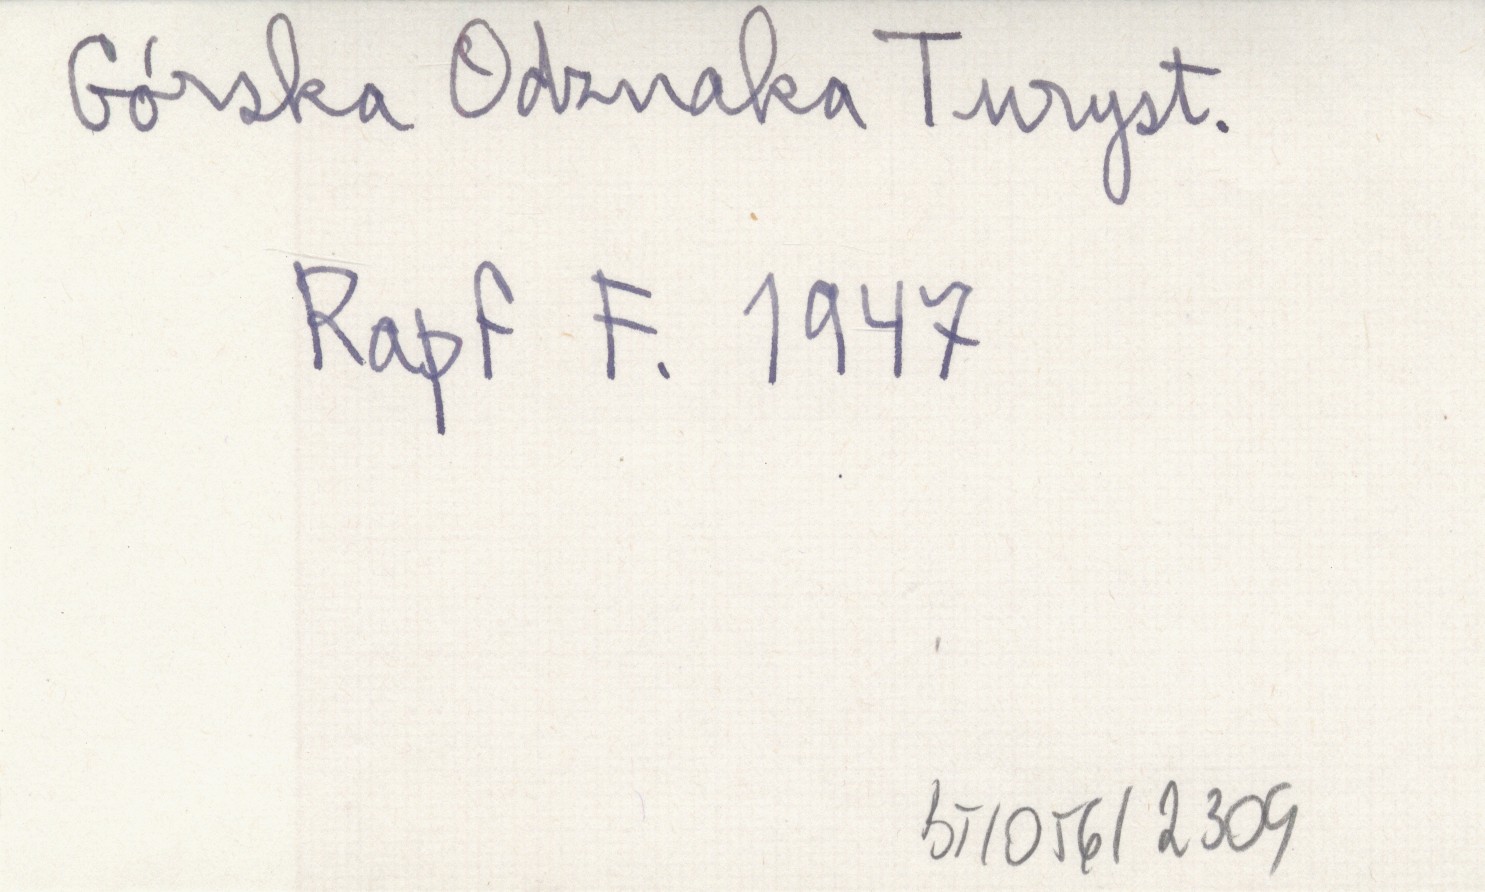 Górska Odznaka Turyst.
Rapf F. 1947
bT/056/2309